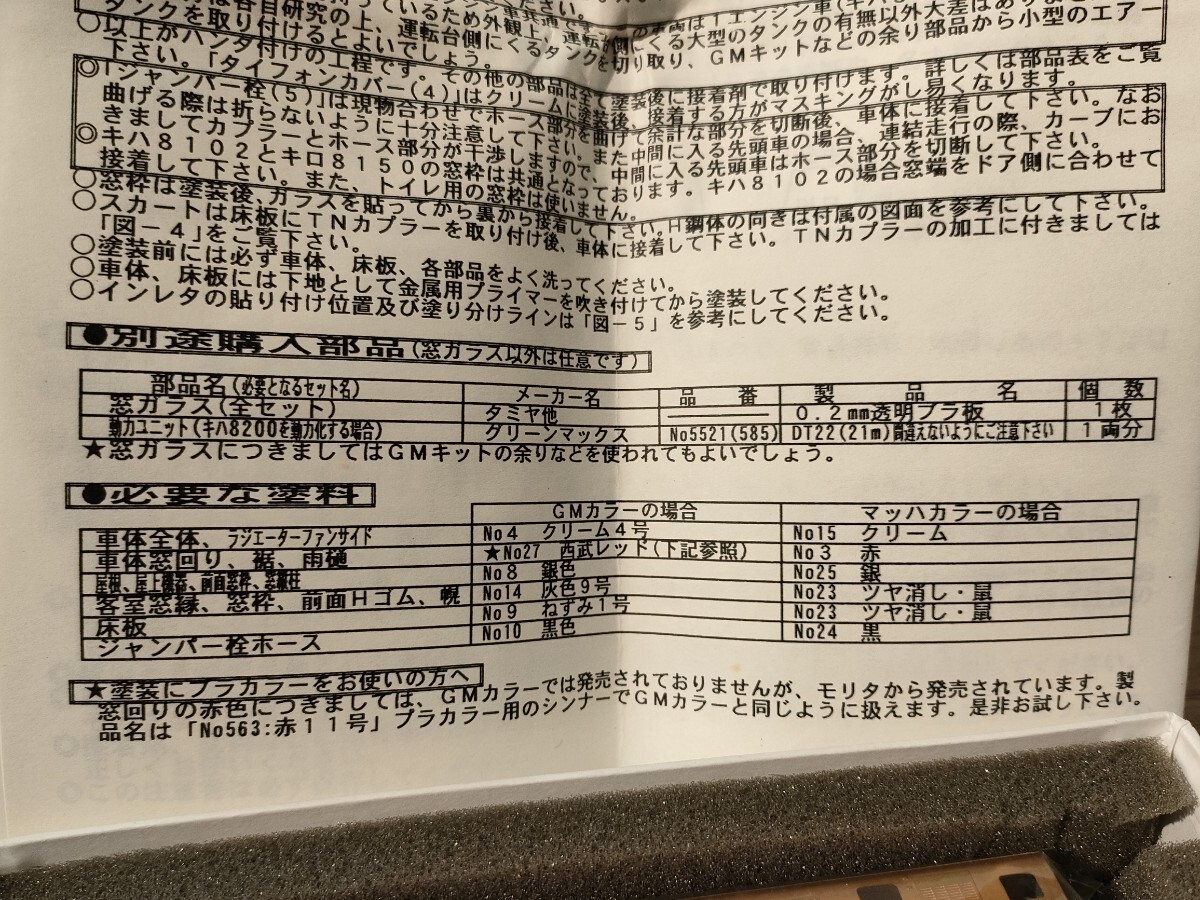 タンクを取り付けるとよいでしょう。
○以上がハンダ付けの工程です。その他の部品は全て塗装後に接着剤で取り付けます。詳しくは部品表をご覧
下さい。「タイフォンカバー(4)」はクリームに塗装後、接着する方がマスキングがし易くなります。
◎「ジャンパー栓(5)」は現物合わせでホース部分を曲げて余計な部分を切断後、車体に接着して下さい。なお
曲げる際は折らないように十分注意して下さい。また中間に入る先頭車の場合、連結走行の際、カーブにお
きましてカプラーとホース部分が干渉しますので、中間に入る先頭車はホース部分を切断して下さい。
◎キハ8102とキロ8150の窓枠は共通となっております。キハ8102の場合窓端をドア側に合わせて
接着して下さい。また、トイレ用の窓枠は使いません。
○窓枠は塗装後、ガラスを貼ってから裏から接着して下さい。H鋼体の向きは付属の図面を参考にして下さい。
○スカートは床板にTNカプラーを取り付け後、車体に接着して下さい。TNカプラーの加工に付きましては
「図-4」をご覧下さい。
○塗装前には必ず車体、床板、各部品をよく洗ってください。
○車体、床板には下地として金属用プライマーを吹き付けてから塗装してください。
○インレタの貼り付け位置及び塗り分けラインは「図-5」を参考にしてください。
●別途購入部品(窓ガラス以外は任意です)
部品名(必要となるセット名) メーカー名 品番 製品名 個数
窓ガラス(全セット) タミヤ他 ――― 0.2mm透明プラ板 1枚
動力ユニット(キハ8200を動力化する場合) グリーンマックス No5521(585) DT22(21m)間違えないようにご注意下さい 1両分
★窓ガラスにつきましてはGMキットの余りなどを使われてもよいでしょう。
●必要な塗料
GMカラーの場合 マッハカラーの場合
車体全体、ラジエーターファンサイド No4 クリーム4号 No15 クリーム
車体窓回り、裾、雨樋 ★No27 西武レッド(下記参照) No3 赤
屋根、屋上機器、前面窓枠、窓縦柱 No8 銀色 No25 銀
客室窓縁、窓枠、前面Hゴム、幌 No14 灰色9号 No23 ツヤ消し・鼠
床板 No9 ねずみ1号 No23 ツヤ消し・鼠
ジャンパー栓ホース No10 黒色 No24 黒
★塗装にプラカラーをお使いの方へ
窓回りの赤色につきましては、GMカラーでは発売されておりませんが、モリタから発売されています。製
品名は「No563:赤11号」プラカラー用のシンナーでGMカラーと同じように扱えます。是非お試し下さい。